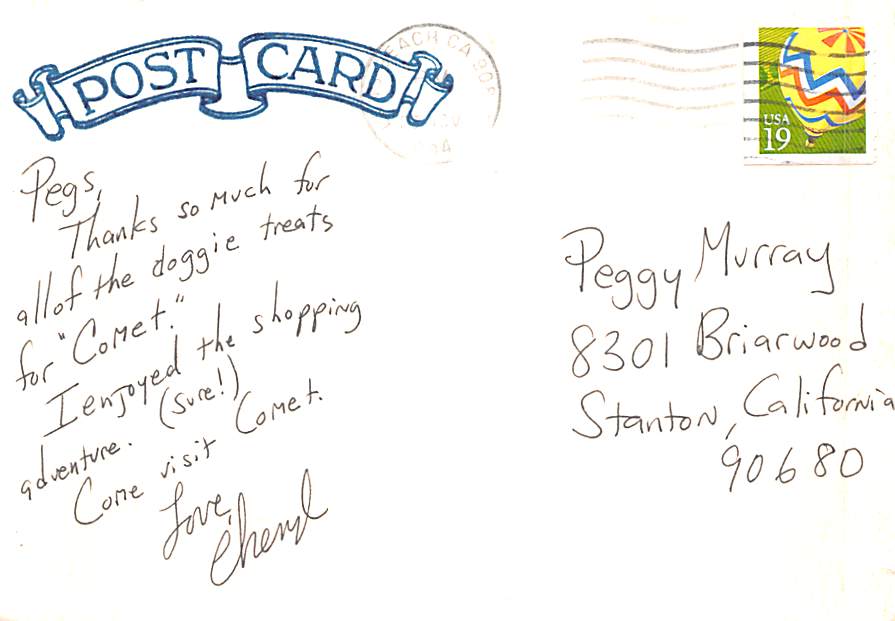 POST CARD
EACH CA 908
USA
19
Pegs,
Thanks so much for
all of the doggie treats
for "Comet."
I enjoyed the shopping
adventure. (Sure!)
Come visit Comet.
Love,
Cheryl
Peggy Murray
8301 Briarwood
Stanton, California
90680